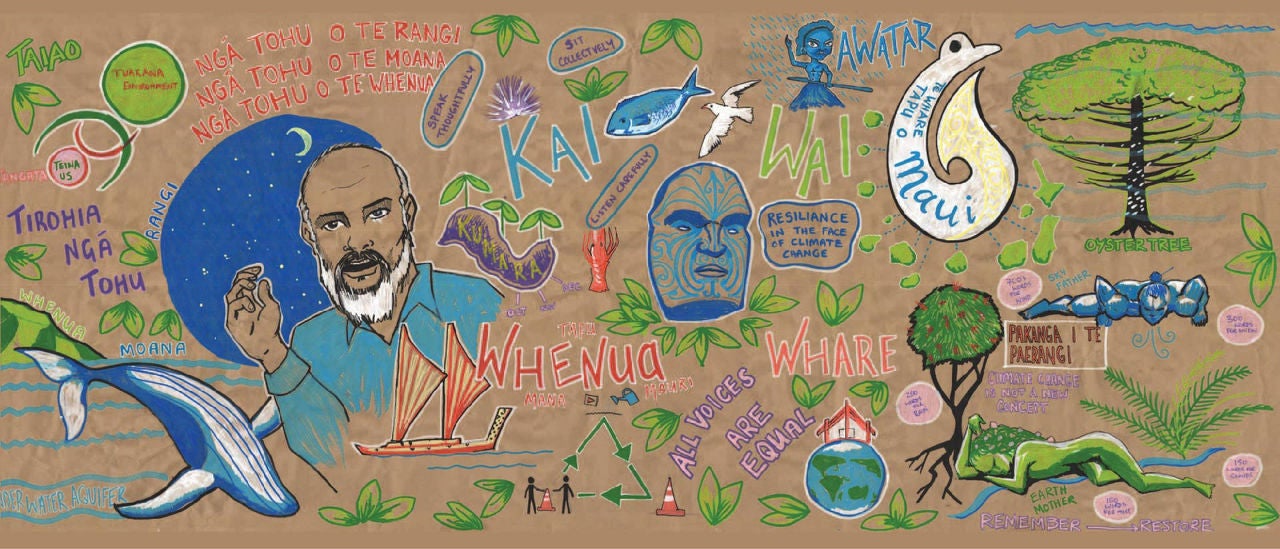 TAIAO
TUAKANA
ENVIRONMENT
TEINA
US
TANGATA
NGĀ TOHU O TE RANGI
NGĀ TOHU O TE MOANA
NGĀ TOHU O TE WHENUA
TIROHIA
NGĀ
TOHU
RANGI
WHENUA
MOANA
WATER AQUIFER
SPEAK
THOUGHTFULLY
SIT
COLLECTIVELY
KAI
LISTEN CAREFULLY
KUMARA
OCT
NOV
DEC
WHENUA
TAPU
MANA
MAURI
AWATAR
WAI
TE WHARE
TAPU O
Maui
RESILIANCE
IN THE FACE
OF CLIMATE
CHANGE
WHARE
ALL VOICES
ARE
EQUAL
OYSTER TREE
SKY
FATHER
700+
WORDS
FOR
WIND
300
WORDS
PAKANGA I TE
PAERANGI
CLIMATE CHANGE
IS NOT A NEW
CONCEPT
200
WORDS
FOR
RAIN
EARTH
MOTHER
100
WORDS
FOR MIST
150
WORDS FOR
CLOUDS
REMEMBER RESTORE